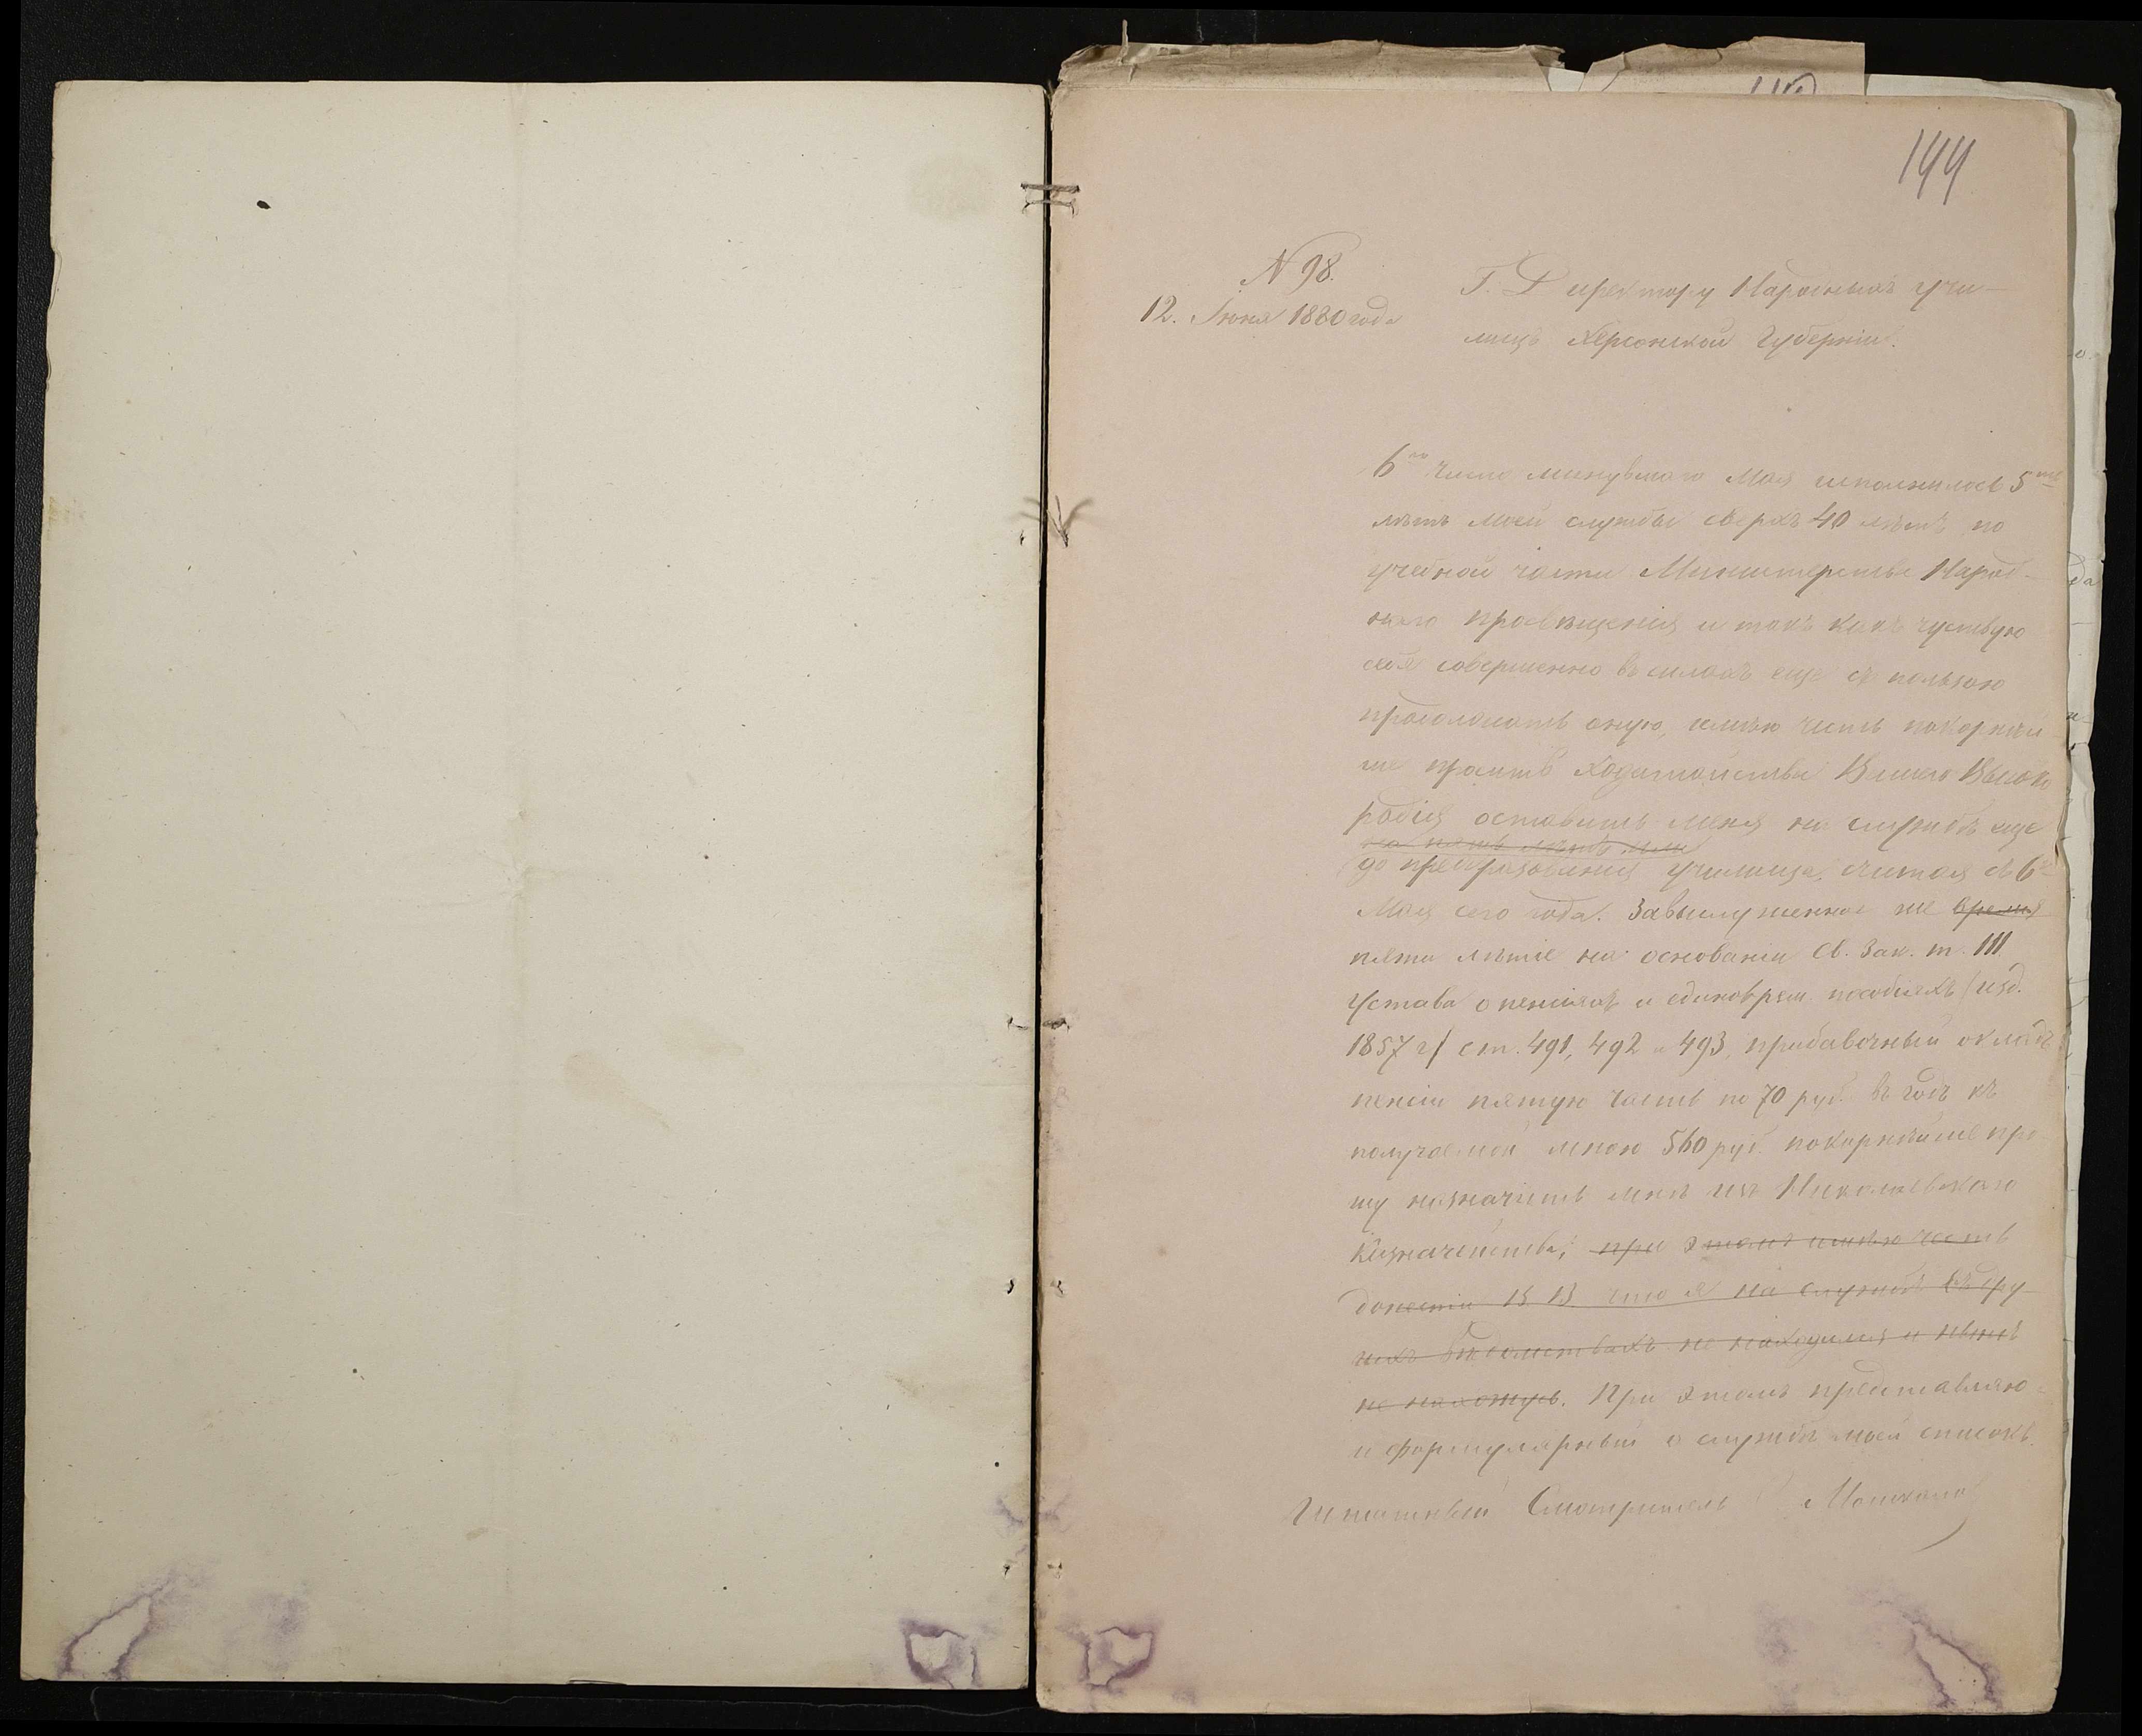 144
N 98.
12. Июня 1880 года
Г. Директору Народныхъ учи-
лищъ Херсонской Губерніи.
6го числа минувшаго Мая исполнилось 5ть
лѣтъ моей службы сверхъ 40 лѣтъ по
учебной части Министерства Народ-
наго просвѣщенія и такъ какъ чуствую
себя совершенно въ силахъ еще съ пользою
продолжать оную, имѣю честь покорнѣй
ше просить ходатайства Вашего Высоко
родія оставить меня на службѣ еще
на пять лѣтъ или
до преобразованія училища, считая съ 6го
Мая сего года. За выслуженное же время
пяти лѣтіе на основаніи Св. Зак. т. III
Устава о пенсіяхъ и единоврем. пособіяхъ (изд.
1857 г) ст. 491, 492 и 493, прибавочный окладъ
пенсіи пятую часть по 70 руб. въ годъ къ
получаемой мною 560 руб. покорнѣйше про
шу назначить мнѣ изъ Николаевскаго
Казначейства; при этомъ имѣю честь
донести В. В. что я на службѣ въ дру
гихъ вѣдомствахъ не находился и нынѣ
не нахожусь. При этомъ представляю
и формулярный о службѣ моей списокъ.
Штатный Смотритель